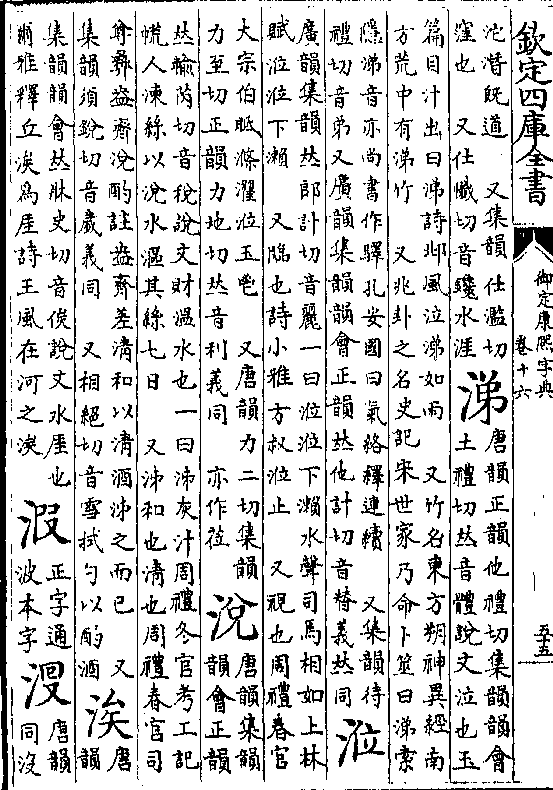 欽定四庫全書
御定康熙字典
卷十六
五十五
沱潛旣道 又集韻仕濫切
窪也 又仕懺切音鑱水涯
涕
唐韻正韻他禮切集韻韻會
土禮切𠀤音體說文泣也玉
篇目汁出曰涕詩邶風泣涕如雨 又竹名東方朔神異經南
方荒中有涕竹 又兆卦之名史記宋世家乃命卜筮曰涕索
隱涕音亦尚書作驛孔安國曰氣絡繹連續 又集韻待
禮切音弟又廣韻集韻韻會正韻𠀤他計切音替義𠀤同
涖
廣韻集韻𠀤郎計切音麗一曰涖涖下瀨水聲司馬相如上林
賦涖涖下瀨 又臨也詩小雅方叔涖止 又視也周禮春官
大宗伯眡滌濯涖玉鬯 又唐韻力二切集韻
力至切正韻力地切𠀤音利義同 亦作莅
涗
唐韻集韻
韻會正韻
𠀤輸芮切音稅說文財溫水也一曰涗灰汁周禮冬官考工記
㡛人湅絲以涗水漚其絲七日 又涗和也淸也周禮春官司
尊彝盎齊涗酌註盎齊差淸和以淸酒涗之而已 又
集韻須銳切音歲義同 又相絕切音雪拭勺以酌酒
涘
唐
韻
集韻韻會𠀤牀史切音俟說文水厓也
爾雅釋丘涘爲厓詩王風在河之涘
正字通
波本字
唐韻
同沒